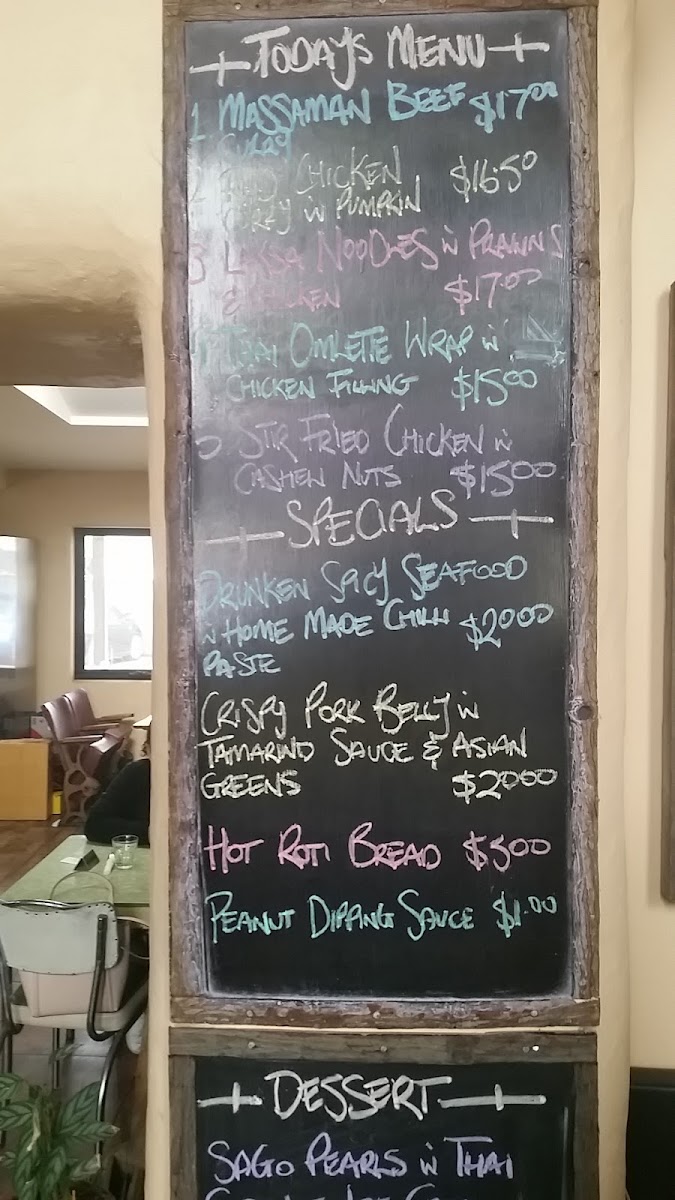 TODAYS MENU
1 MASSAMAN BEEF $17.00
CURRY
2 CHICKEN $16.50
CURRY W PUMPKIN
3 LAKSA NOODLES W PRAWNS
& CHICKEN $17.00
4 THAI OMLETTE WRAP W
CHICKEN FILLING $15.00
5 STIR FRIED CHICKEN W
CASHEW NUTS $15.00
SPECIALS
DRUNKEN SPICY SEAFOOD
W HOME MADE CHILLI $20.00
PASTE
CRISPY PORK BELLY W
TAMARIND SAUCE & ASIAN
GREENS $20.00
HOT ROTI BREAD $5.00
PEANUT DIPPING SAUCE $1.00
DESSERT
SAGO PEARLS W THAI